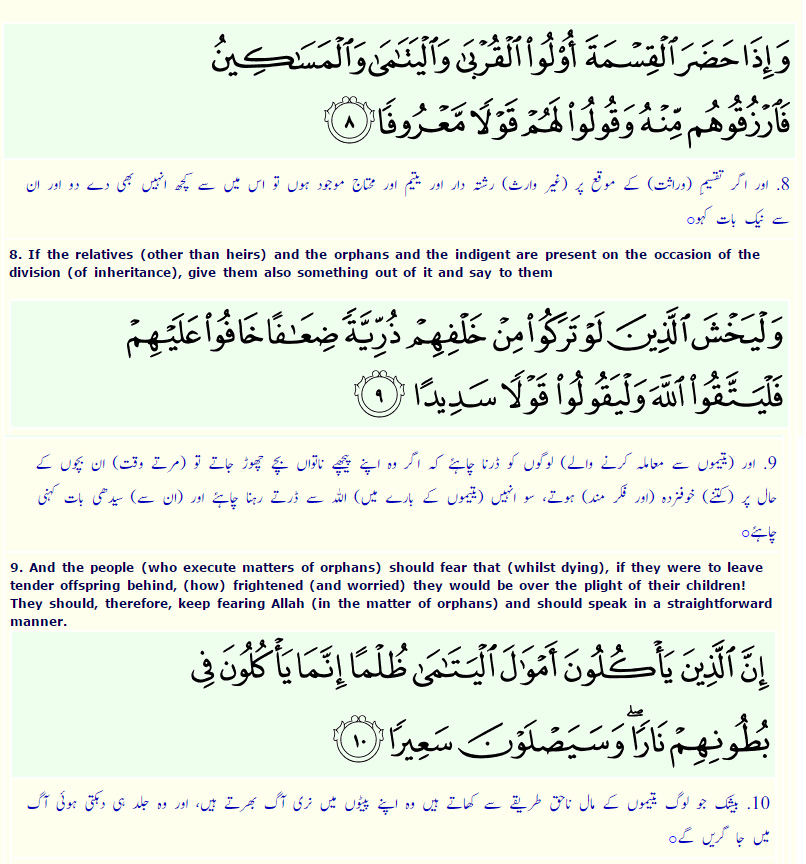 وَإِذَا حَضَرَ ٱلْقِسْمَةَ أُو۟لُوا۟ ٱلْقُرْبَىٰ وَٱلْيَتَٰمَىٰ وَٱلْمَسَٰكِينُ
فَٱرْزُقُوهُم مِّنْهُ وَقُولُوا۟ لَهُمْ قَوْلًا مَّعْرُوفًا ٨
8. اور اگر تقسیمِ (وراثت) کے موقع پر (غیر وارث) رشتہ دار اور یتیم اور محتاج موجود ہوں تو اس میں سے کچھ انہیں بھی دے دو اور ان
سے نیک بات کہو○
8. If the relatives (other than heirs) and the orphans and the indigent are present on the occasion of the
division (of inheritance), give them also something out of it and say to them
وَلْيَخْشَ ٱلَّذِينَ لَوْ تَرَكُوا۟ مِنْ خَلْفِهِمْ ذُرِّيَّةً ضِعَٰفًا خَافُوا۟ عَلَيْهِمْ
فَلْيَتَّقُوا۟ ٱللَّهَ وَلْيَقُولُوا۟ قَوْلًا سَدِيدًا ٩
9. اور (یتیموں سے معاملہ کرنے والے) لوگوں کو ڈرنا چاہئے کہ اگر وہ اپنے پیچھے ناتواں بچے چھوڑ جاتے تو (مرتے وقت) ان بچوں کے
حال پر (کتنے) خوفزدہ (اور فکر مند) ہوتے، سو انہیں (یتیموں کے بارے میں) اللہ سے ڈرتے رہنا چاہئے اور (ان سے) سیدھی بات کہنی
چاہئے○
9. And the people (who execute matters of orphans) should fear that (whilst dying), if they were to leave
tender offspring behind, (how) frightened (and worried) they would be over the plight of their children!
They should, therefore, keep fearing Allah (in the matter of orphans) and should speak in a straightforward
manner.
إِنَّ ٱلَّذِينَ يَأْكُلُونَ أَمْوَٰلَ ٱلْيَتَٰمَىٰ ظُلْمًا إِنَّمَا يَأْكُلُونَ فِى
بُطُونِهِمْ نَارًا ۖ وَسَيَصْلَوْنَ سَعِيرًا ١٠
10. بیشک جو لوگ یتیموں کے مال ناحق طریقے سے کھاتے ہیں وہ اپنے پیٹوں میں نری آگ بھرتے ہیں، اور وہ جلد ہی دہکتی ہوئی آگ
میں جا گریں گے○